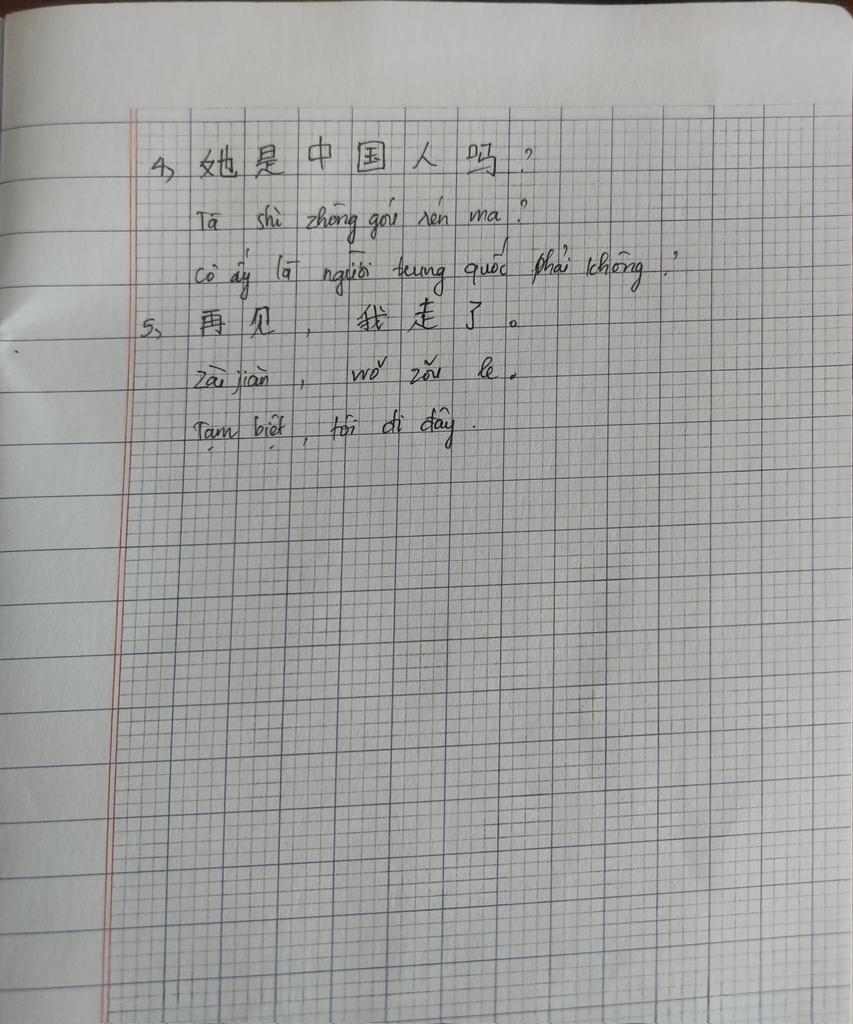 4, 她是中国人吗?
Tā shì zhōng góu rén ma?
Cô ấy là người trung quốc phải không?
5, 再见, 我走了。
Zài jiàn, wǒ zǒu le.
Tạm biệt, tôi đi đây.